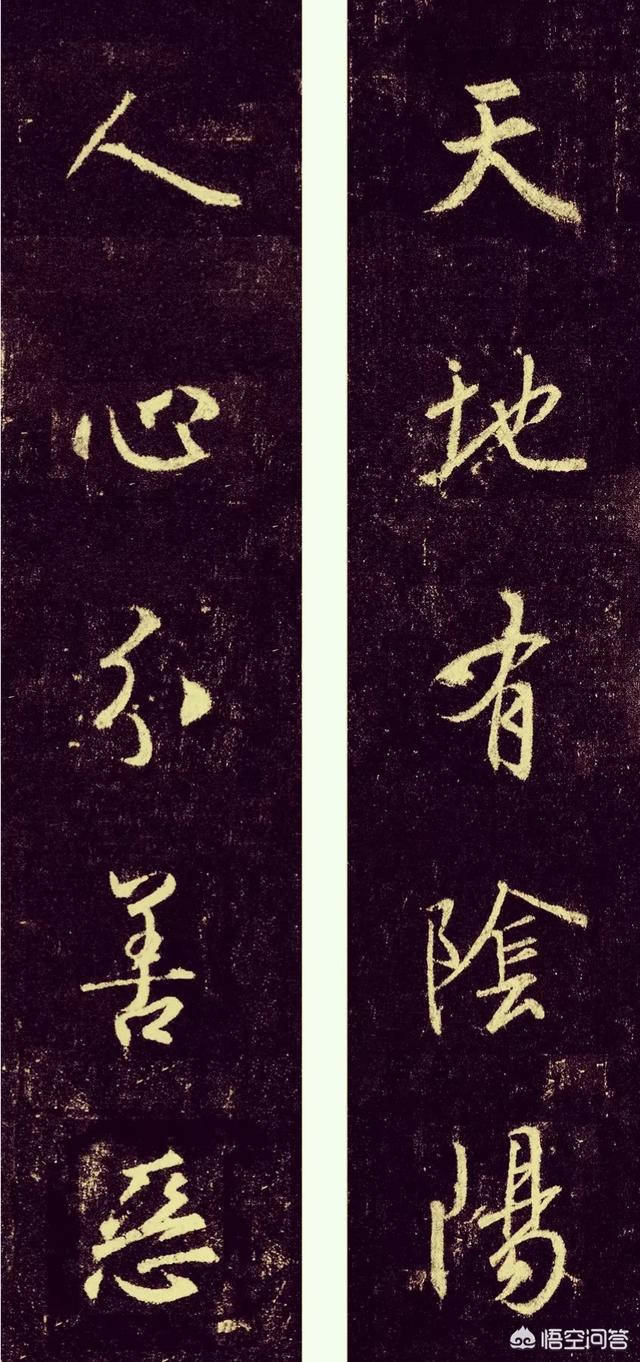 天地有陰陽
人心分善惡
悟空问答